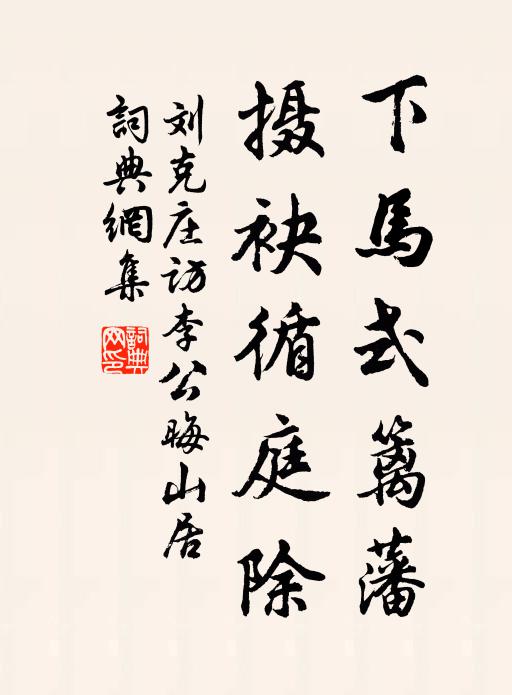 下馬式籬藩
摄袂循庭除
刘克庄访李公晦山居
詞典網集
詞典網印